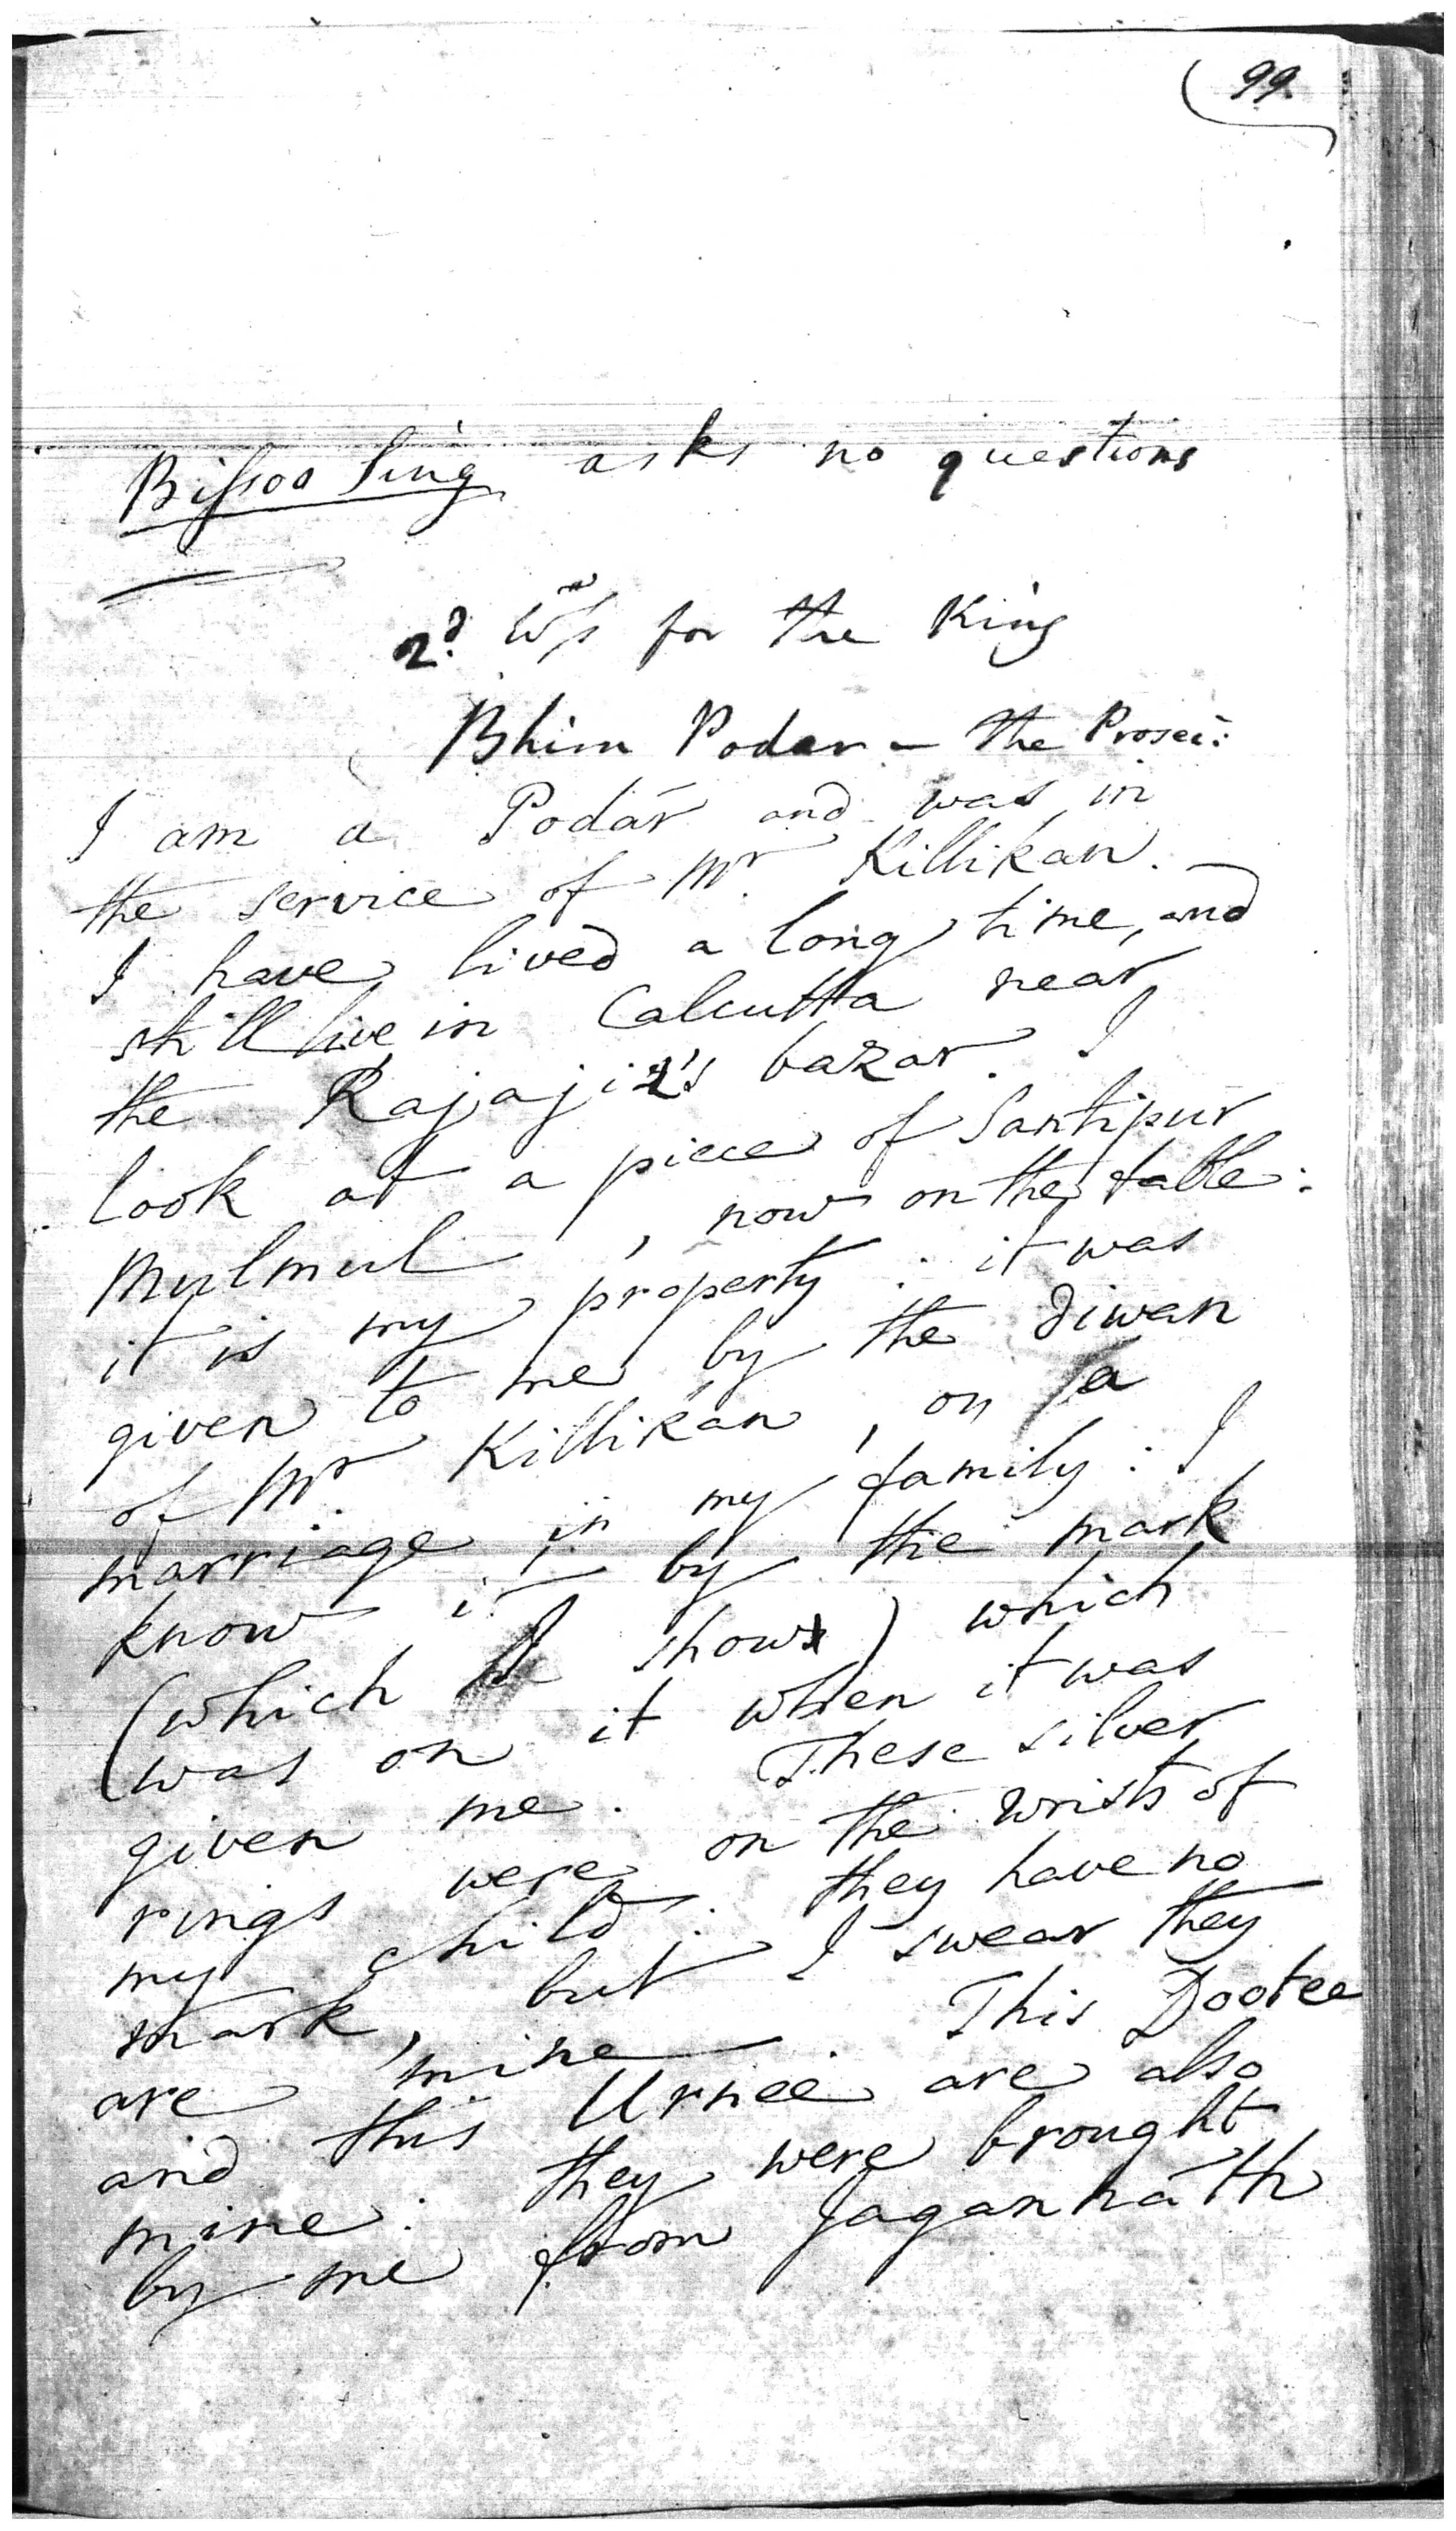 99
Bissoo Sing asks no questions
2d Ws for the King
Bhim Podar - the Prosec:
I am a Podár and was in
the service of Mr Killikan. —
I have lived a long time, and
still live in Calcutta near
the Rajaji's bazar. I
look at a piece of Santipur
Mulmul, now on the table:
it is my property : it was
given to me by the Diwan
of Mr Killikan, on a
marriage in my family : I
know it by the mark
(which I show) which
was on it when it was
given me. These silver
rings were on the wrists of
my child : they have no
mark, but I swear they
are mine — This Dootee
and this Urnee are also
mine : they were brought
by me from Jagannáth